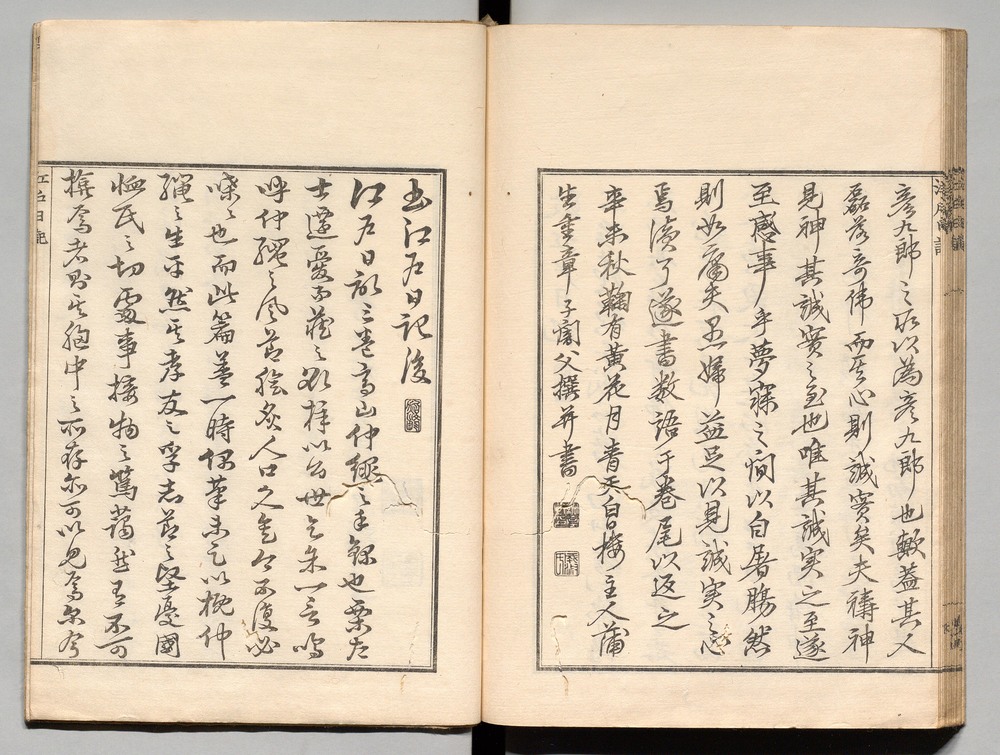 彦九郎之所以為彦九郎也歟蓋其人
磊落奇偉而其心則誠實矣夫禱神
見神其誠實之至也唯其誠実之至遂
至感事乎夢寐之間以自屠腸然
則如庸夫愚婦益足以見誠実之
焉読了遂書数語于巻尾以返之
辛未秋鞠有黄花月香天白楼主人蒲
生重章子闇父撰并書
書江戸日記後
江戸日記三巻高山仲縄之手録也栗左
士邁愛而蔵之欲梓以公世乞余一言嗚
呼仲縄之風節膾炙人口久矣今不復必
喋々也而此篇蓋一時偶筆未足以概仲
縄之生平然其孝友之孚志節之堅憂國
恤民之切處事接物之篤藹然有不可
掩焉者則其胸中之所存亦可以見焉余
江戸日記